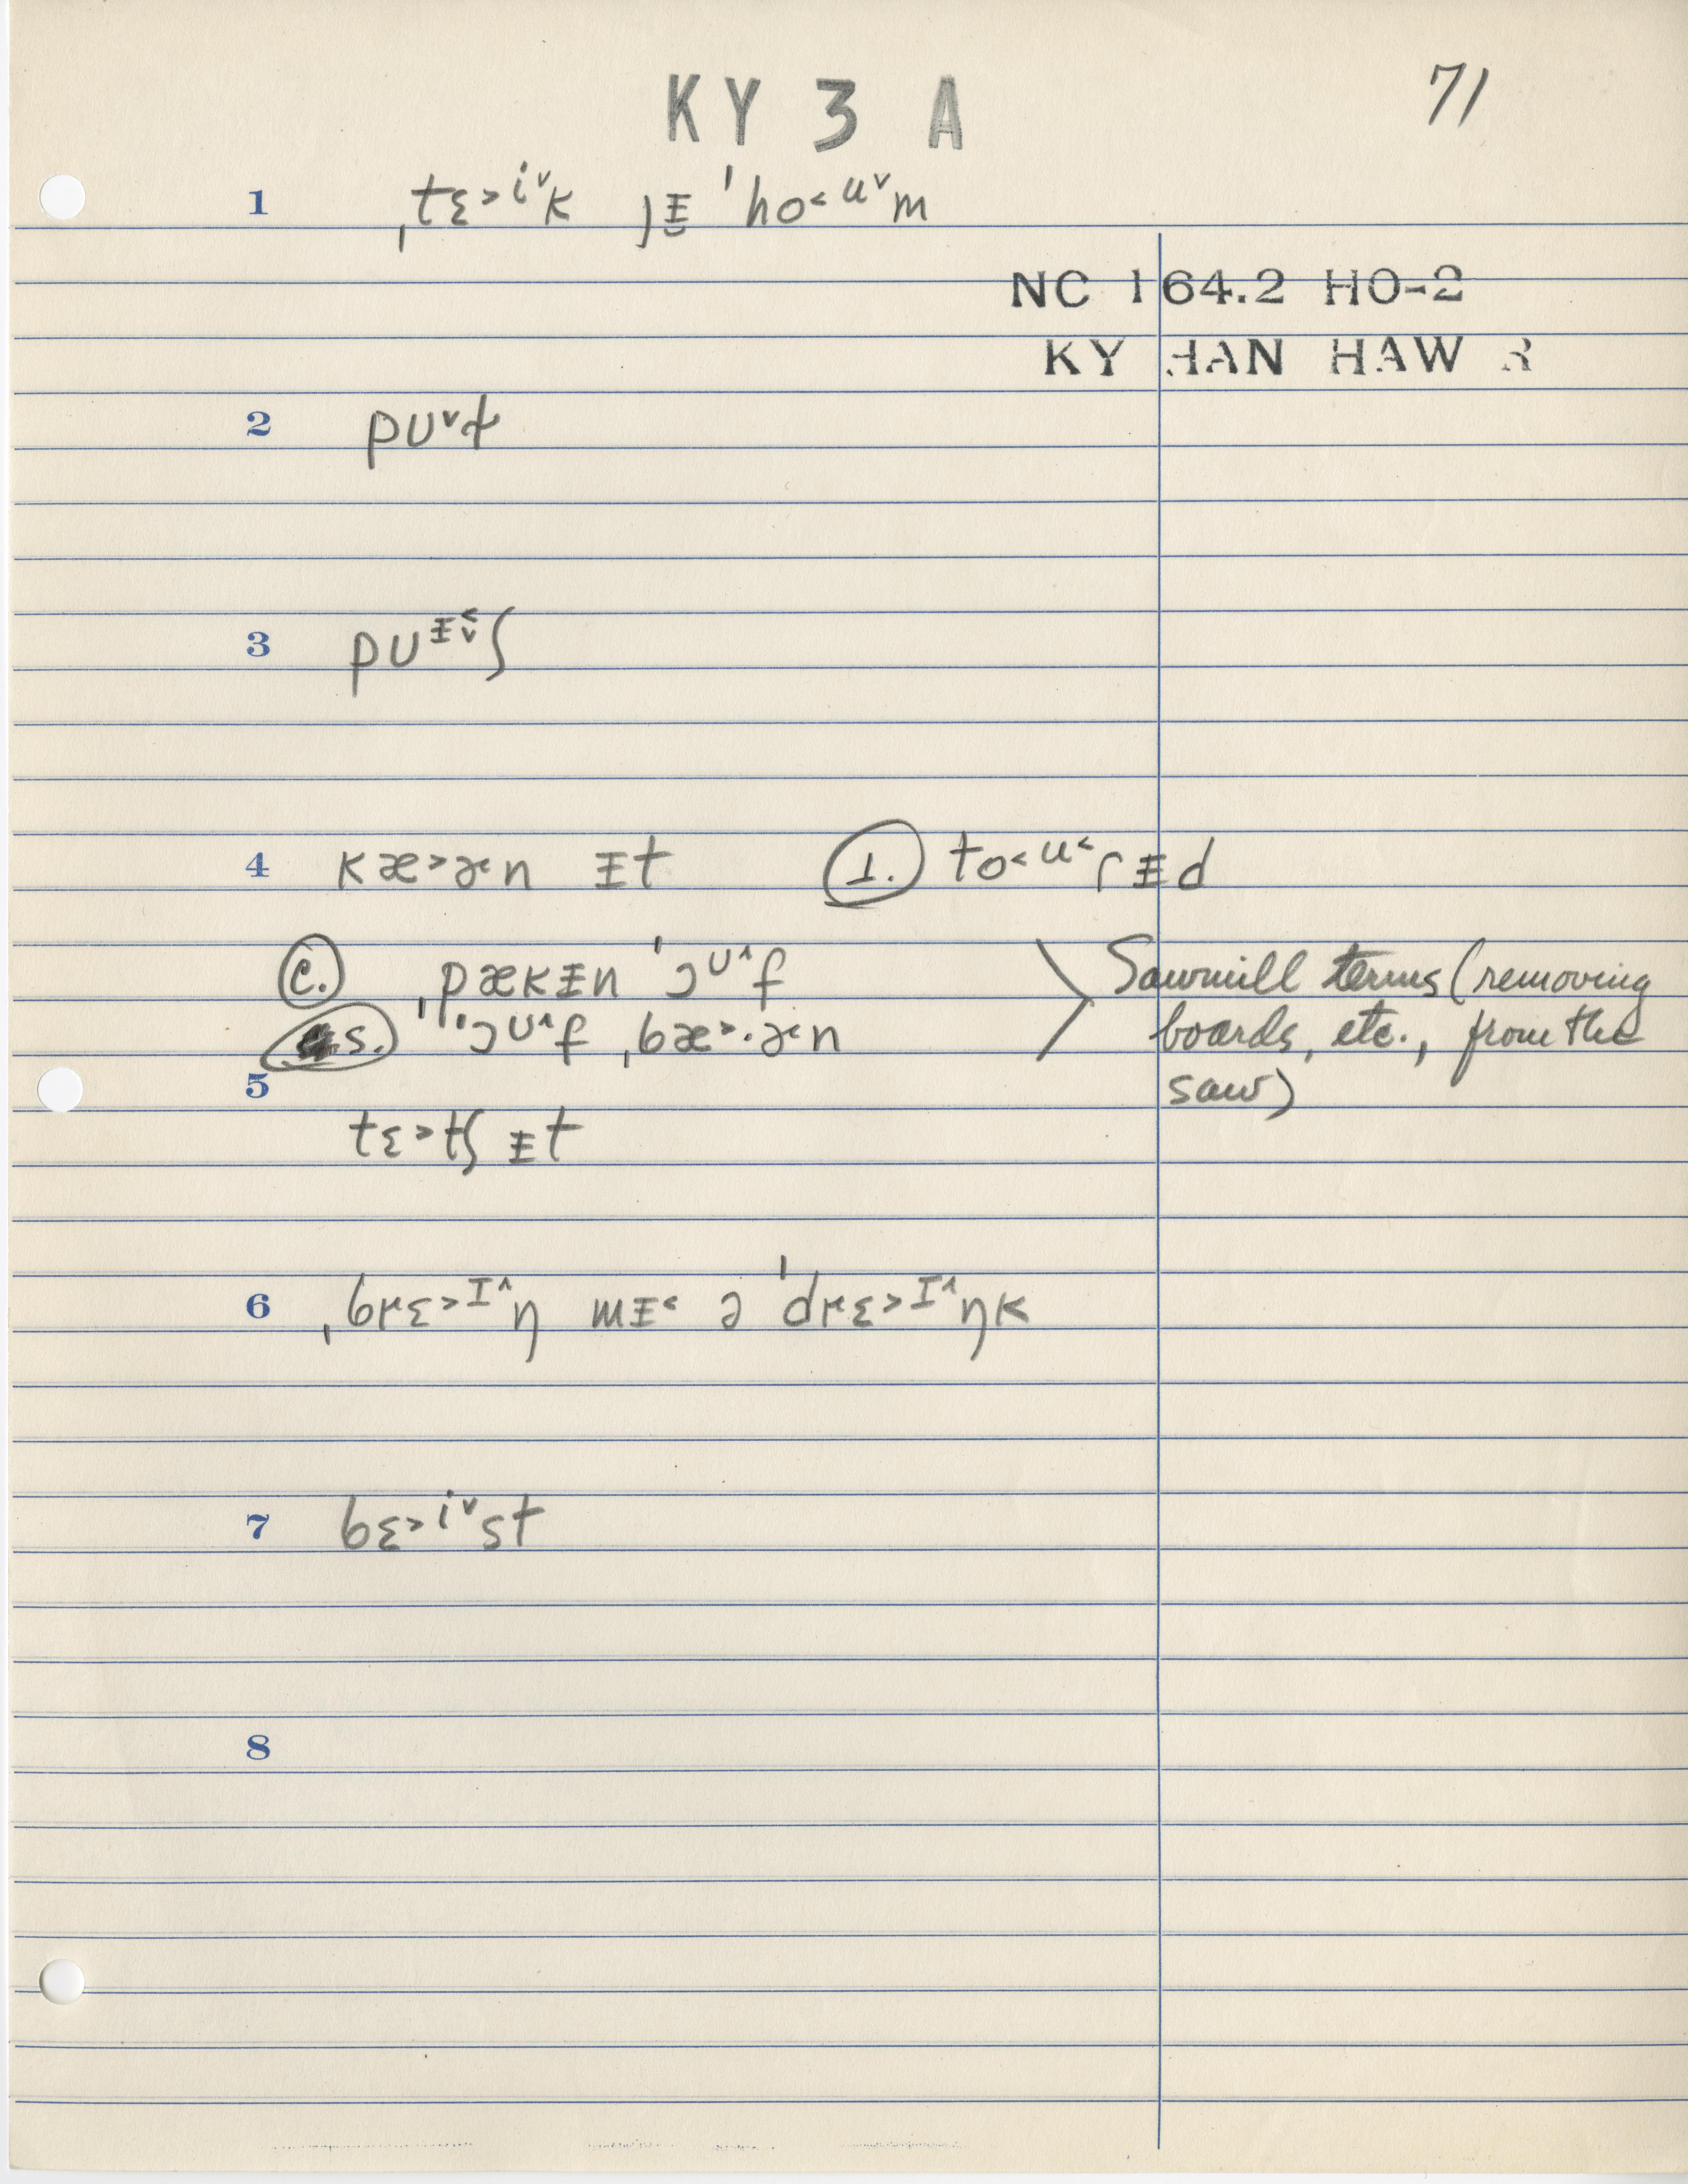 KY 3 A
71
1 ˌtɛ˃iˇk j ᵻ̯ ˈho˂uˇm
NC 164.2 HO-2
KY HAN HAW R
2 pʊˇt
3 pʊᵻ˂ˇʃ
4 kæ˃æn ᵻt (1.) to˂u˂rᵻd
(c.) ˌpækᵻn ˈɔʊ^f
(s.) ˈˈɔʊ^f ˌbæ˃·æn
Sawmill terms (removing
boards, etc., from the
saw)
5
tɛ˃tʃ ᵻt
6 ˌbrɛ˃ɪ^ŋ mᵻ˂ ə ˈdrɛ˃ɪ^ŋk
7 bɛ˃iˇst
8